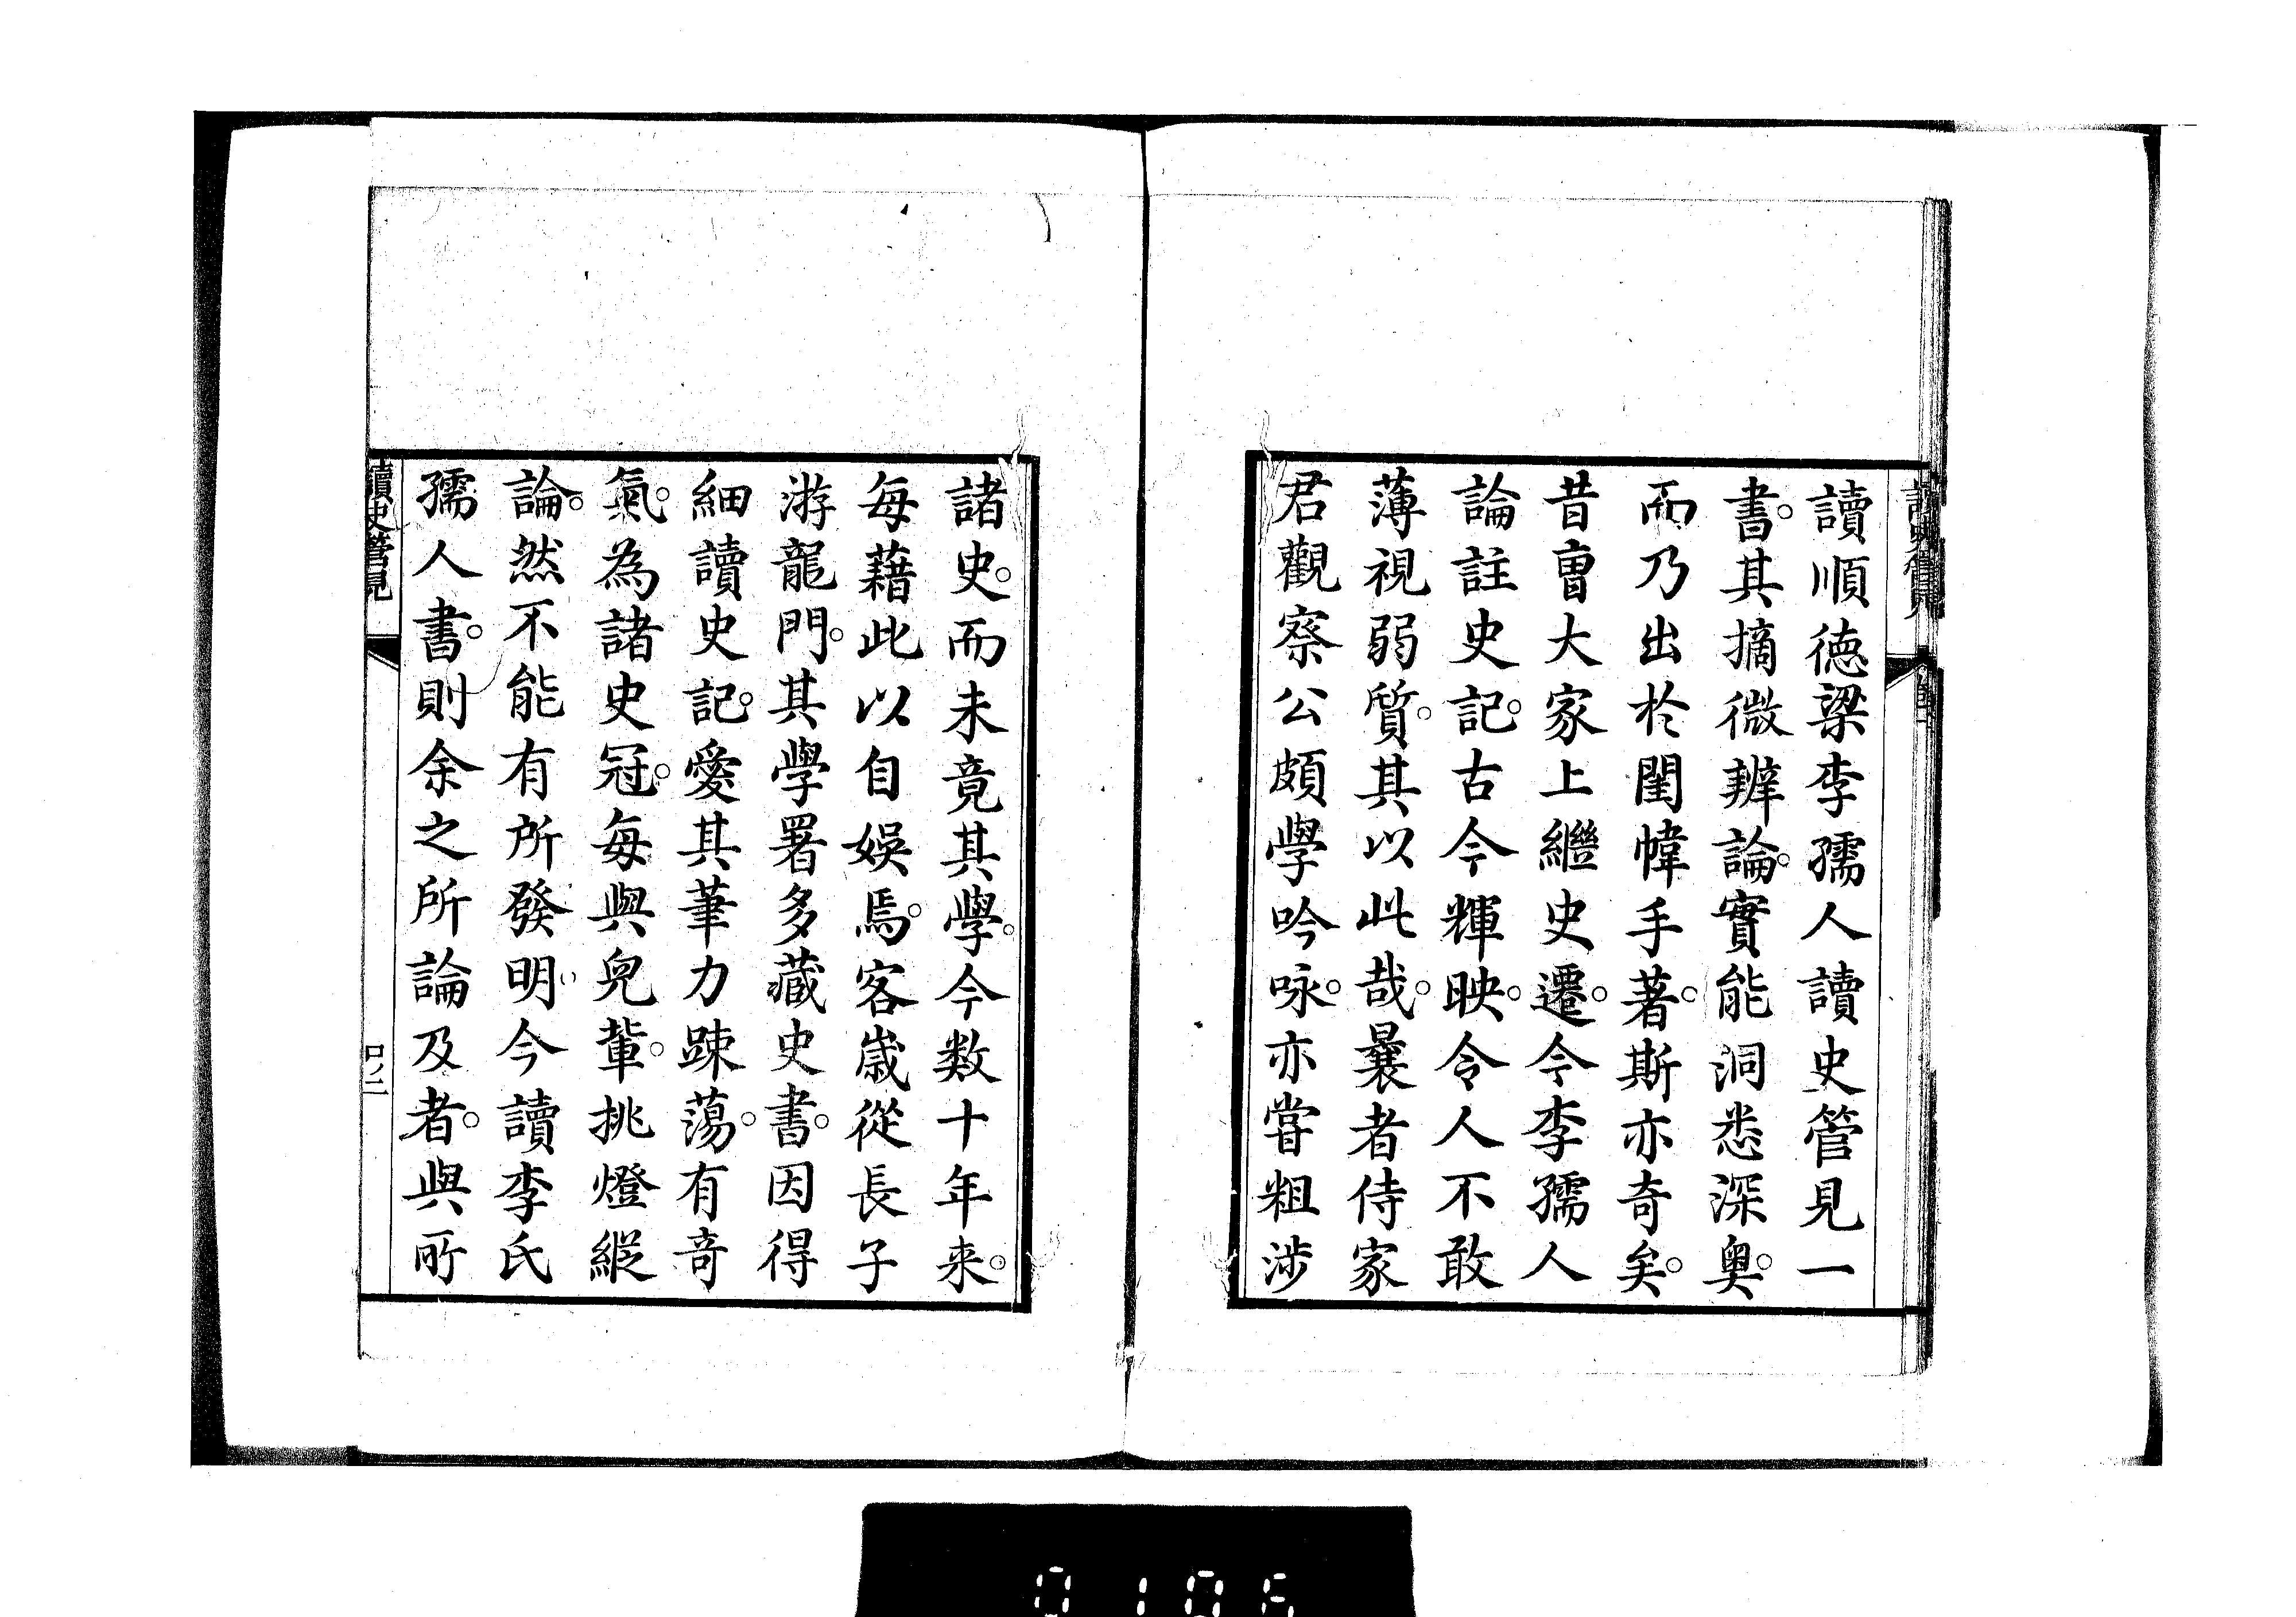 讀順徳梁李孺人讀史管見一
書。其摘微辨論。實能洞悉深奥。
而乃出於閨幃手著。斯亦奇矣。
昔曹大家上繼史遷。今李孺人
論註史記。古今輝映。令人不敢
薄視弱質。其以此哉。曩者侍家
君觀察公頗學吟咏。亦嘗粗涉
諸史。而未竟其學。今数十年来。
每藉此以自娛焉。客歲從長子
游龍門。其學署多藏史書。因得
細讀史記。愛其筆力踈蕩。有奇
氣。為諸史冠。每與兒輩。挑燈縱
論。然不能有所發明。今讀李氏
孺人書。則余之所論及者。與所
讀史管見
0106